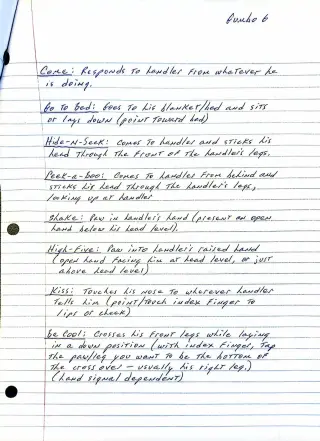 Gumbo 6
Come: Responds to handler from whatever he
is doing.
Go to Bed: Goes to his blanket/bed and sits
or lays down (point toward bed)
Hide-N-Seek: Comes to handler and sticks his
head through the front of the handler's legs.
Peek-a-Boo: Comes to handler from behind and
sticks his head through the handler's legs,
looking up at handler
Shake: Paw in handler's hand (present an open
hand below his head level).
High-Five: Paw into handler's raised hand
(open hand facing him at head level, or just
above head level)
Kiss: Touches his nose to wherever handler
tells him (point/touch index finger to
lips or cheek)
Be Cool: Crosses his front legs while laying
in a down position (with index finger, tap
the paw/leg you want to be the bottom of
the cross over - usually his right leg.)
(hand signal dependent)